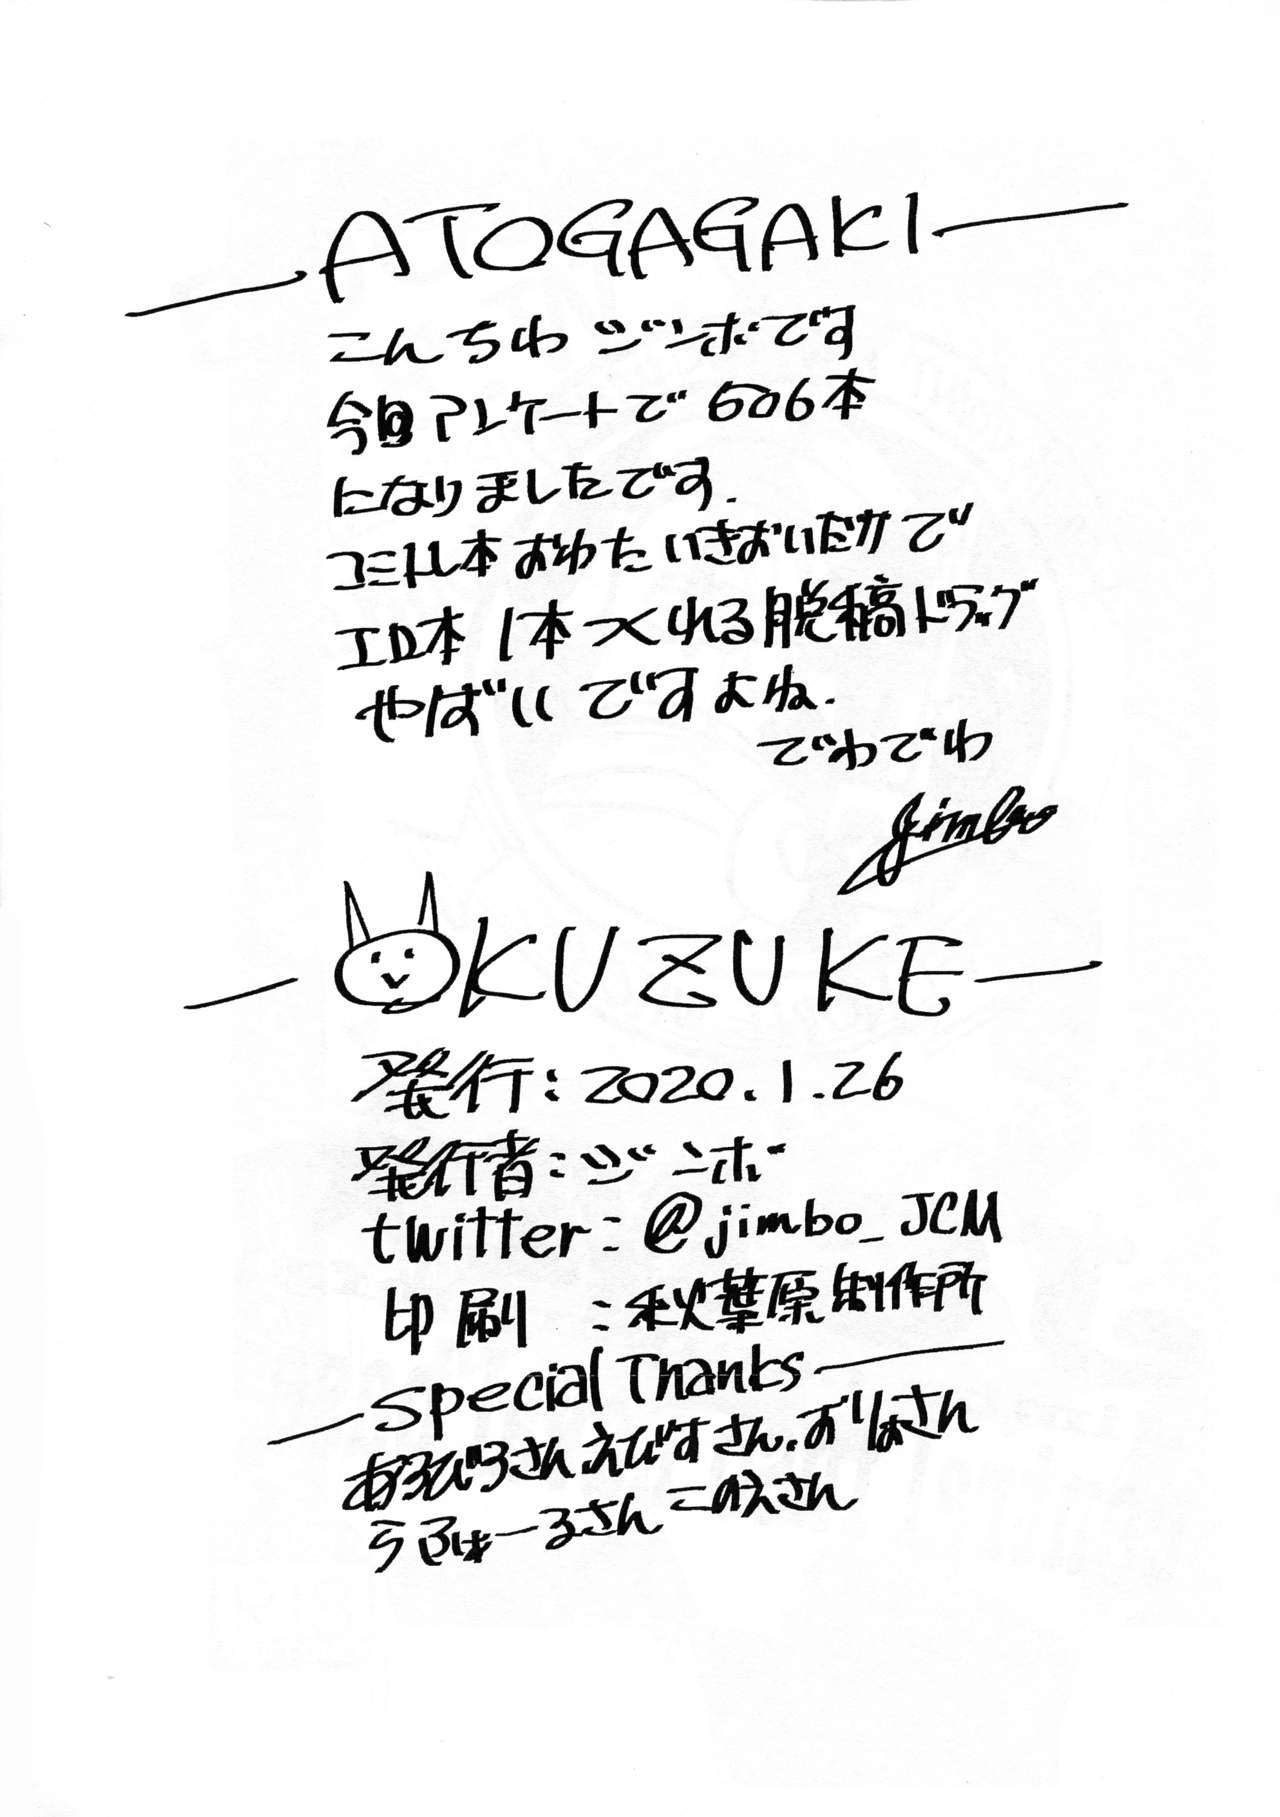 ATOGAGAKI
こんちわ ジンボです
今回アンケートで 606本
になりましたです.
コミトレ本おわたいきおいだかで
エロ本1本つくれる脱稿ドラッグ
やばいですよね.
でわでわ
jimbo
OKUZUKE
発行:2020.1.26
発行者:ジンボ
twitter:@jimbo_JCM
印刷 :秋葉原制作所
Special Thanks
あるびろさん えびすさん.おりはさん
うふぁーるさん このえさん